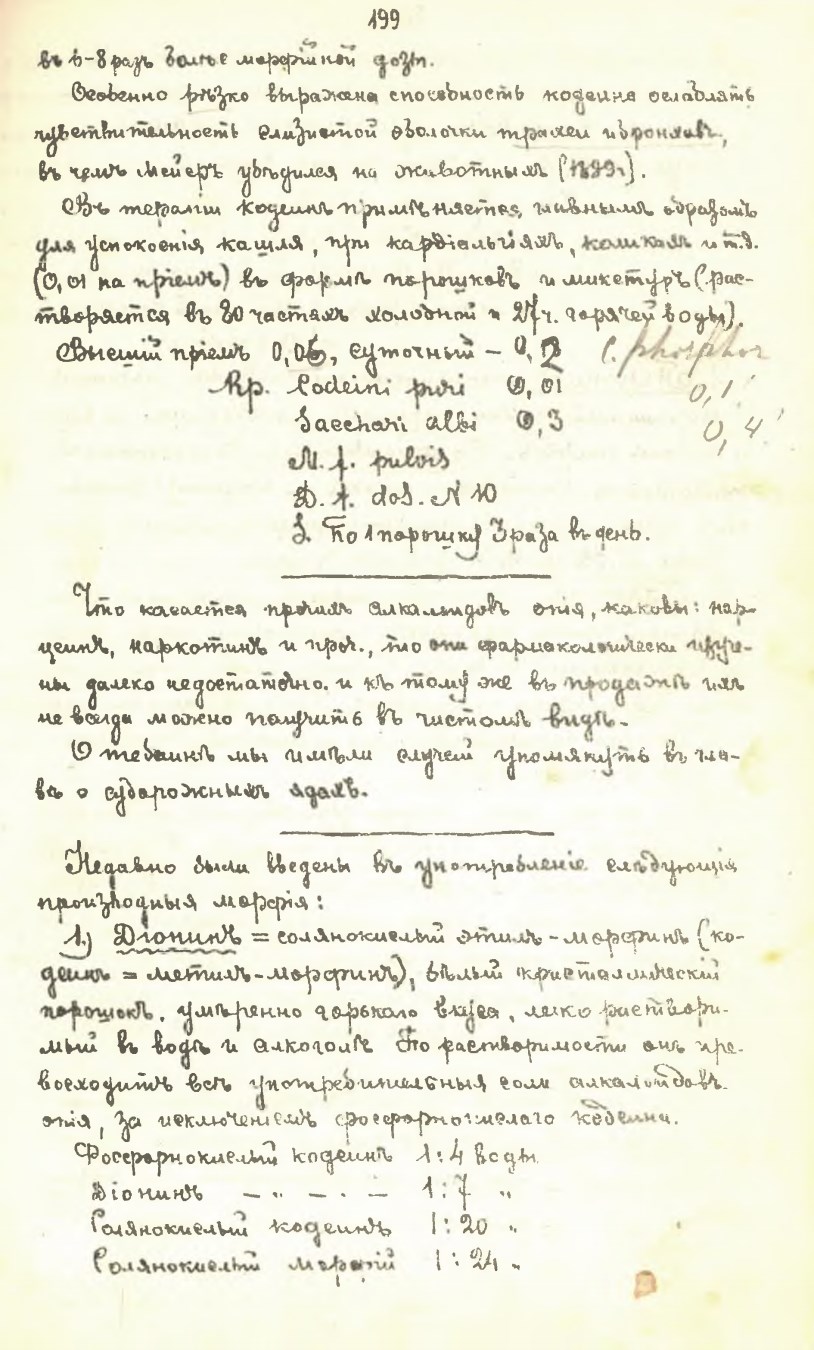 199
въ 6-8 разъ болѣе морфійной дозы.
Особенно рѣзко выражена способность кодеина ослаблять
чувствительность слизистой оболочки трахеи и бронховъ,
въ чемъ Мейеръ убѣдился на животныхъ (1899г.).
Въ терапіи кодеинъ примѣняется главнымъ образомъ
для успокоенія кашля, при кардіальгіяхъ, коликахъ и т.д.
(0,01 на пріемъ) въ формѣ порошковъ и микстуръ (рас-
творяется въ 80 частяхъ холодной и 27ч. горячей воды).
Высшій пріемъ 0,05, суточный – 0,2 C. phosphor
Rp. Codeini puri 0,01 0,1
Sacchari albi 0,3 0,4
M. f. pulvis
D. t. dos. N 10
S. По 1 порошку 3 раза въ день.
Что касается прочихъ алкалоидовъ опія, каковы: нар-
цеинъ, наркотинъ и проч., то они фармакологически изуче-
ны далеко недостаточно. и къ тому же въ продажѣ ихъ
не всегда можно получить въ чистомъ видѣ.
О тебаинѣ мы имѣли случай упомянуть въ гла-
вѣ о судорожныхъ ядахъ.
Недавно были введены въ употребленіе слѣдующія
производныя морфія:
1) Діонинъ = солянокислый этилъ-морфинъ (ко-
деинъ = метилъ-морфинъ), бѣлый кристаллическій
порошокъ, умѣренно горькаго вкуса, легко раствори-
мый въ водѣ и алкоголѣ По растворимости онъ пре-
восходитъ всѣ употребительныя соли алкалоидовъ
опія, за исключеніемъ фосфорнокислаго кодеина.
Фосфорнокислый кодеинъ 1:4 воды
Діонинъ – " – . – 1:7 "
Солянокислый кодеинъ 1:20 "
Солянокислый морфій 1:24 "